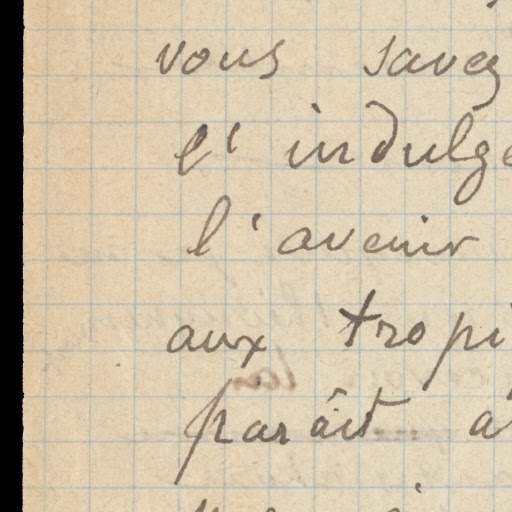 vous savez
l'indulge
l'avenir
aux tropi
paraît a